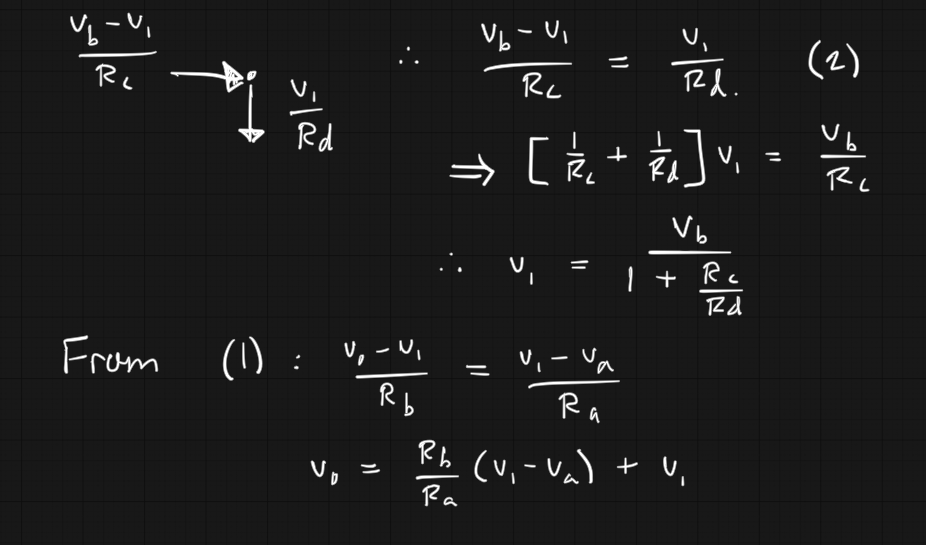 (v_b - v_1)/R_c → ↓ v_1/R_d ∴ (v_b - v_1)/R_c = v_1/R_d. (2)
⇒ [1/R_c + 1/R_d] v_1 = v_b/R_c
∴ v_1 = v_b/(1 + R_c/R_d)
From (1) : (v_o - v_1)/R_b = (v_1 - v_a)/R_a
v_o = R_b/R_a (v_1 - v_a) + v_1